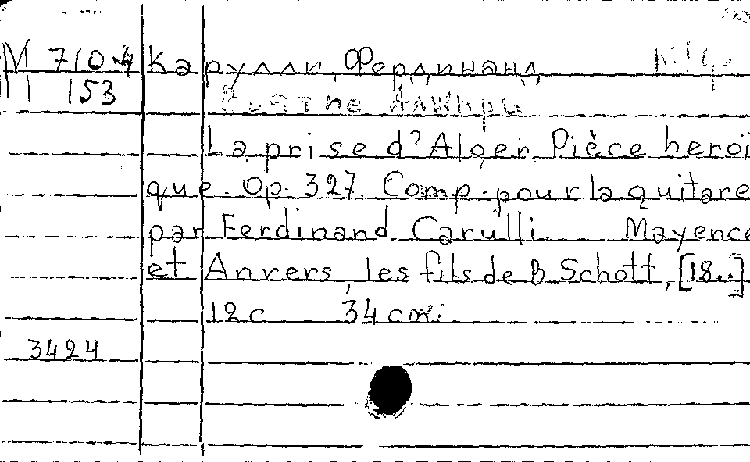 М 710.4 Карулли, Фердинанд
П 153 Взятие Алжира
La prise d'Alger. Pièce heroï
que. Op. 327. Comp. pour la guitare
par Ferdinand Carulli. Mayence
et Anvers, les fils de B. Schott, [18..]
12 с 34 см.
3424